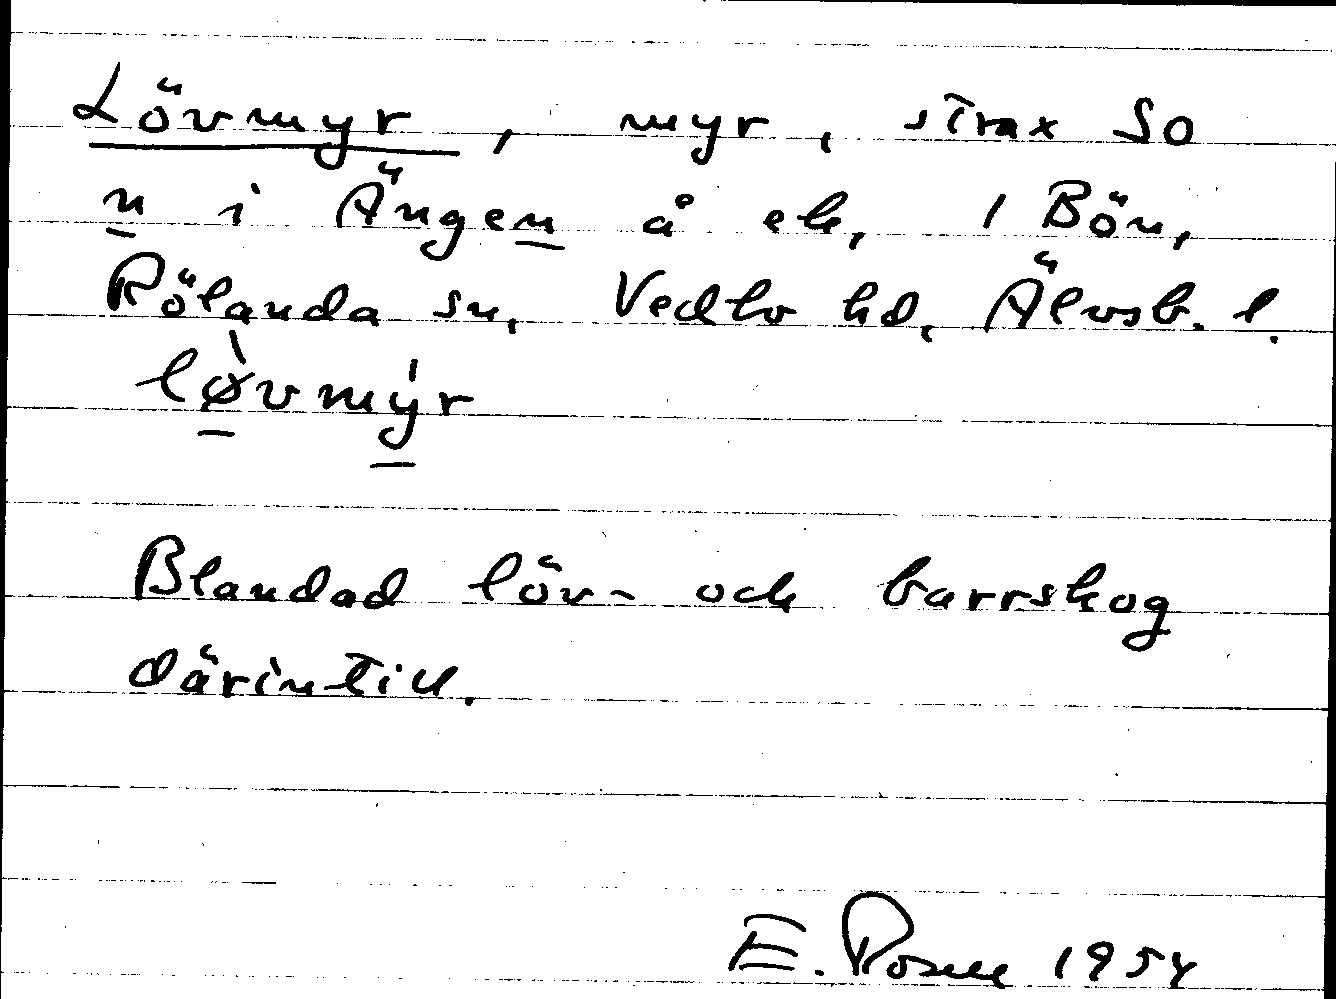 Lövmyr, myr, strax SO
n i Ängen å ek, 1 Bön,
Rölanda sn, Vedbo hd, Älvsb. l.
lø̀vmýr
Blandad löv- och barrskog
därintill.
E. 1954